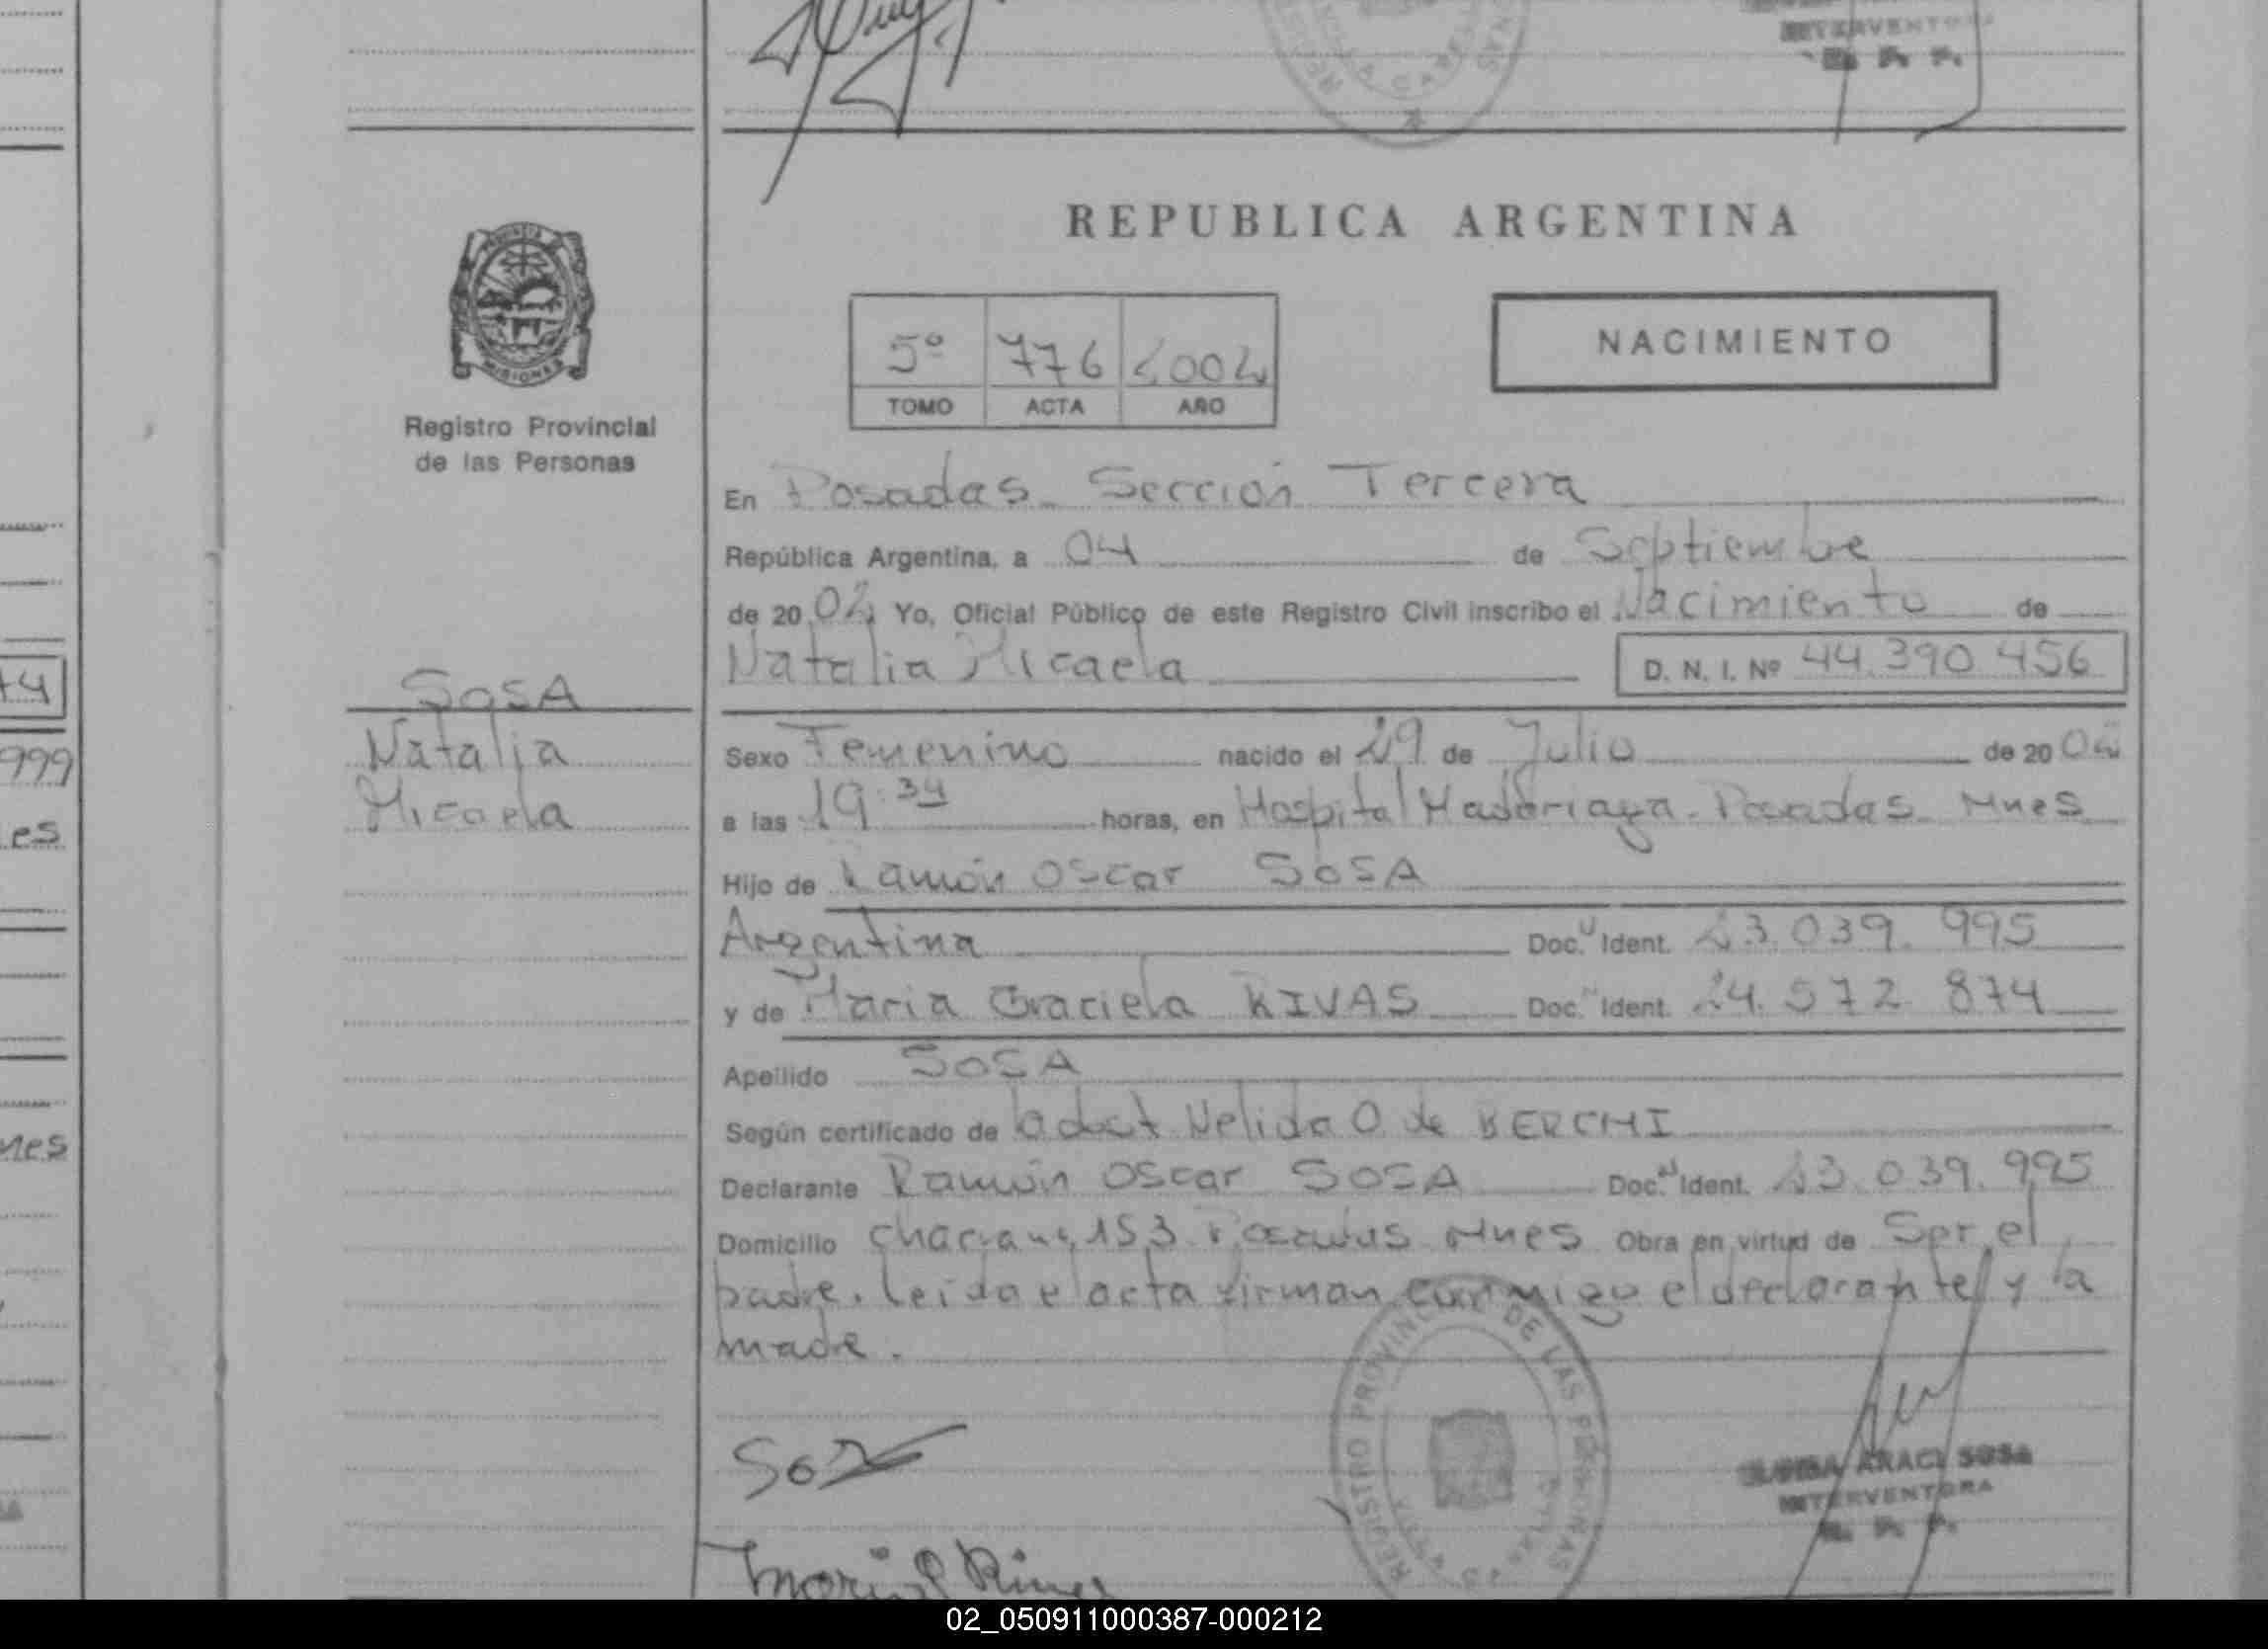 INTERVENTORA
R. P. P.
REPUBLICA ARGENTINA
PROVINCIA
MISIONES
Registro Provincial
de las Personas
5º 776 2002
TOMO ACTA AÑO
NACIMIENTO
En Posadas Sección Tercera
República Argentina, a 04 de Septiembre
de 20 02 Yo, Oficial Público de este Registro Civil inscribo el Nacimiento de
Natalia Micaela D. N. I. Nº 44.390.456
SOSA
Natalia
Micaela
Sexo Femenino nacido el 29 de Julio de 20 02
a las 19:34 horas, en Hospital Madariaga. Posadas Mnes
Hijo de Ramón Oscar SOSA
Argentina Doc. Ident. 23.039.995
y de Maria Graciela RIVAS Doc. Ident. 24.572.874
Apellido SOSA
Según certificado de la doct Nelida O de
Declarante Ramón Oscar SOSA Doc. Ident. 23.039.995
Domicilio 153 Posadas Mnes Obra en virtud de Ser el
padre. leida el acta firman conmigo el declarante y la
madre.
REGISTRO PROVINCIAL DE LAS PERSONAS
ARACI SOSA
INTERVENTORA
R. P. P.
74
999
es
nes
02_050911000387-000212